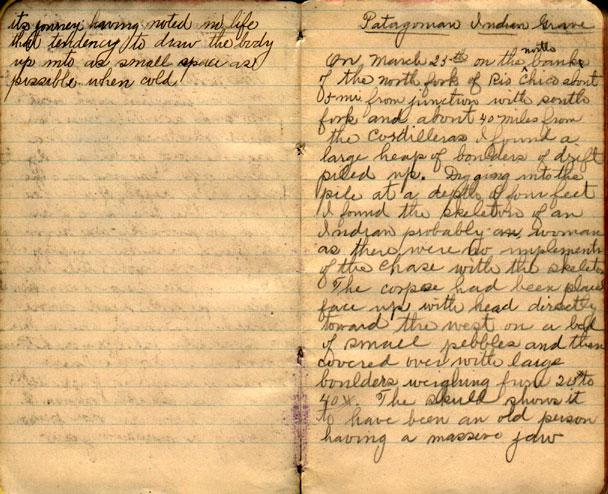 its journey having noted in life
that tendency to draw the body
up into as small space as
possible when cold
Patagonian Indian Grave
On March 25th on the north banks
of the north fork of Rio Chico about
5 mi. from junction with south
fork and about 40 miles from
the Cordilleras I found a
large heap of boulders of drift
piled up. Digging into the
pile at a depth of four feet
I found the skeleton of an
Indian probably an woman
as there were no implements
of the chase with the skeleton
The corpse had been placed
face up with head directly
toward the west on a bed
of small pebbles and then
covered over with large
boulders weighing from 20 to
40#. The skull shows it
to have been an old person
having a massive jaw